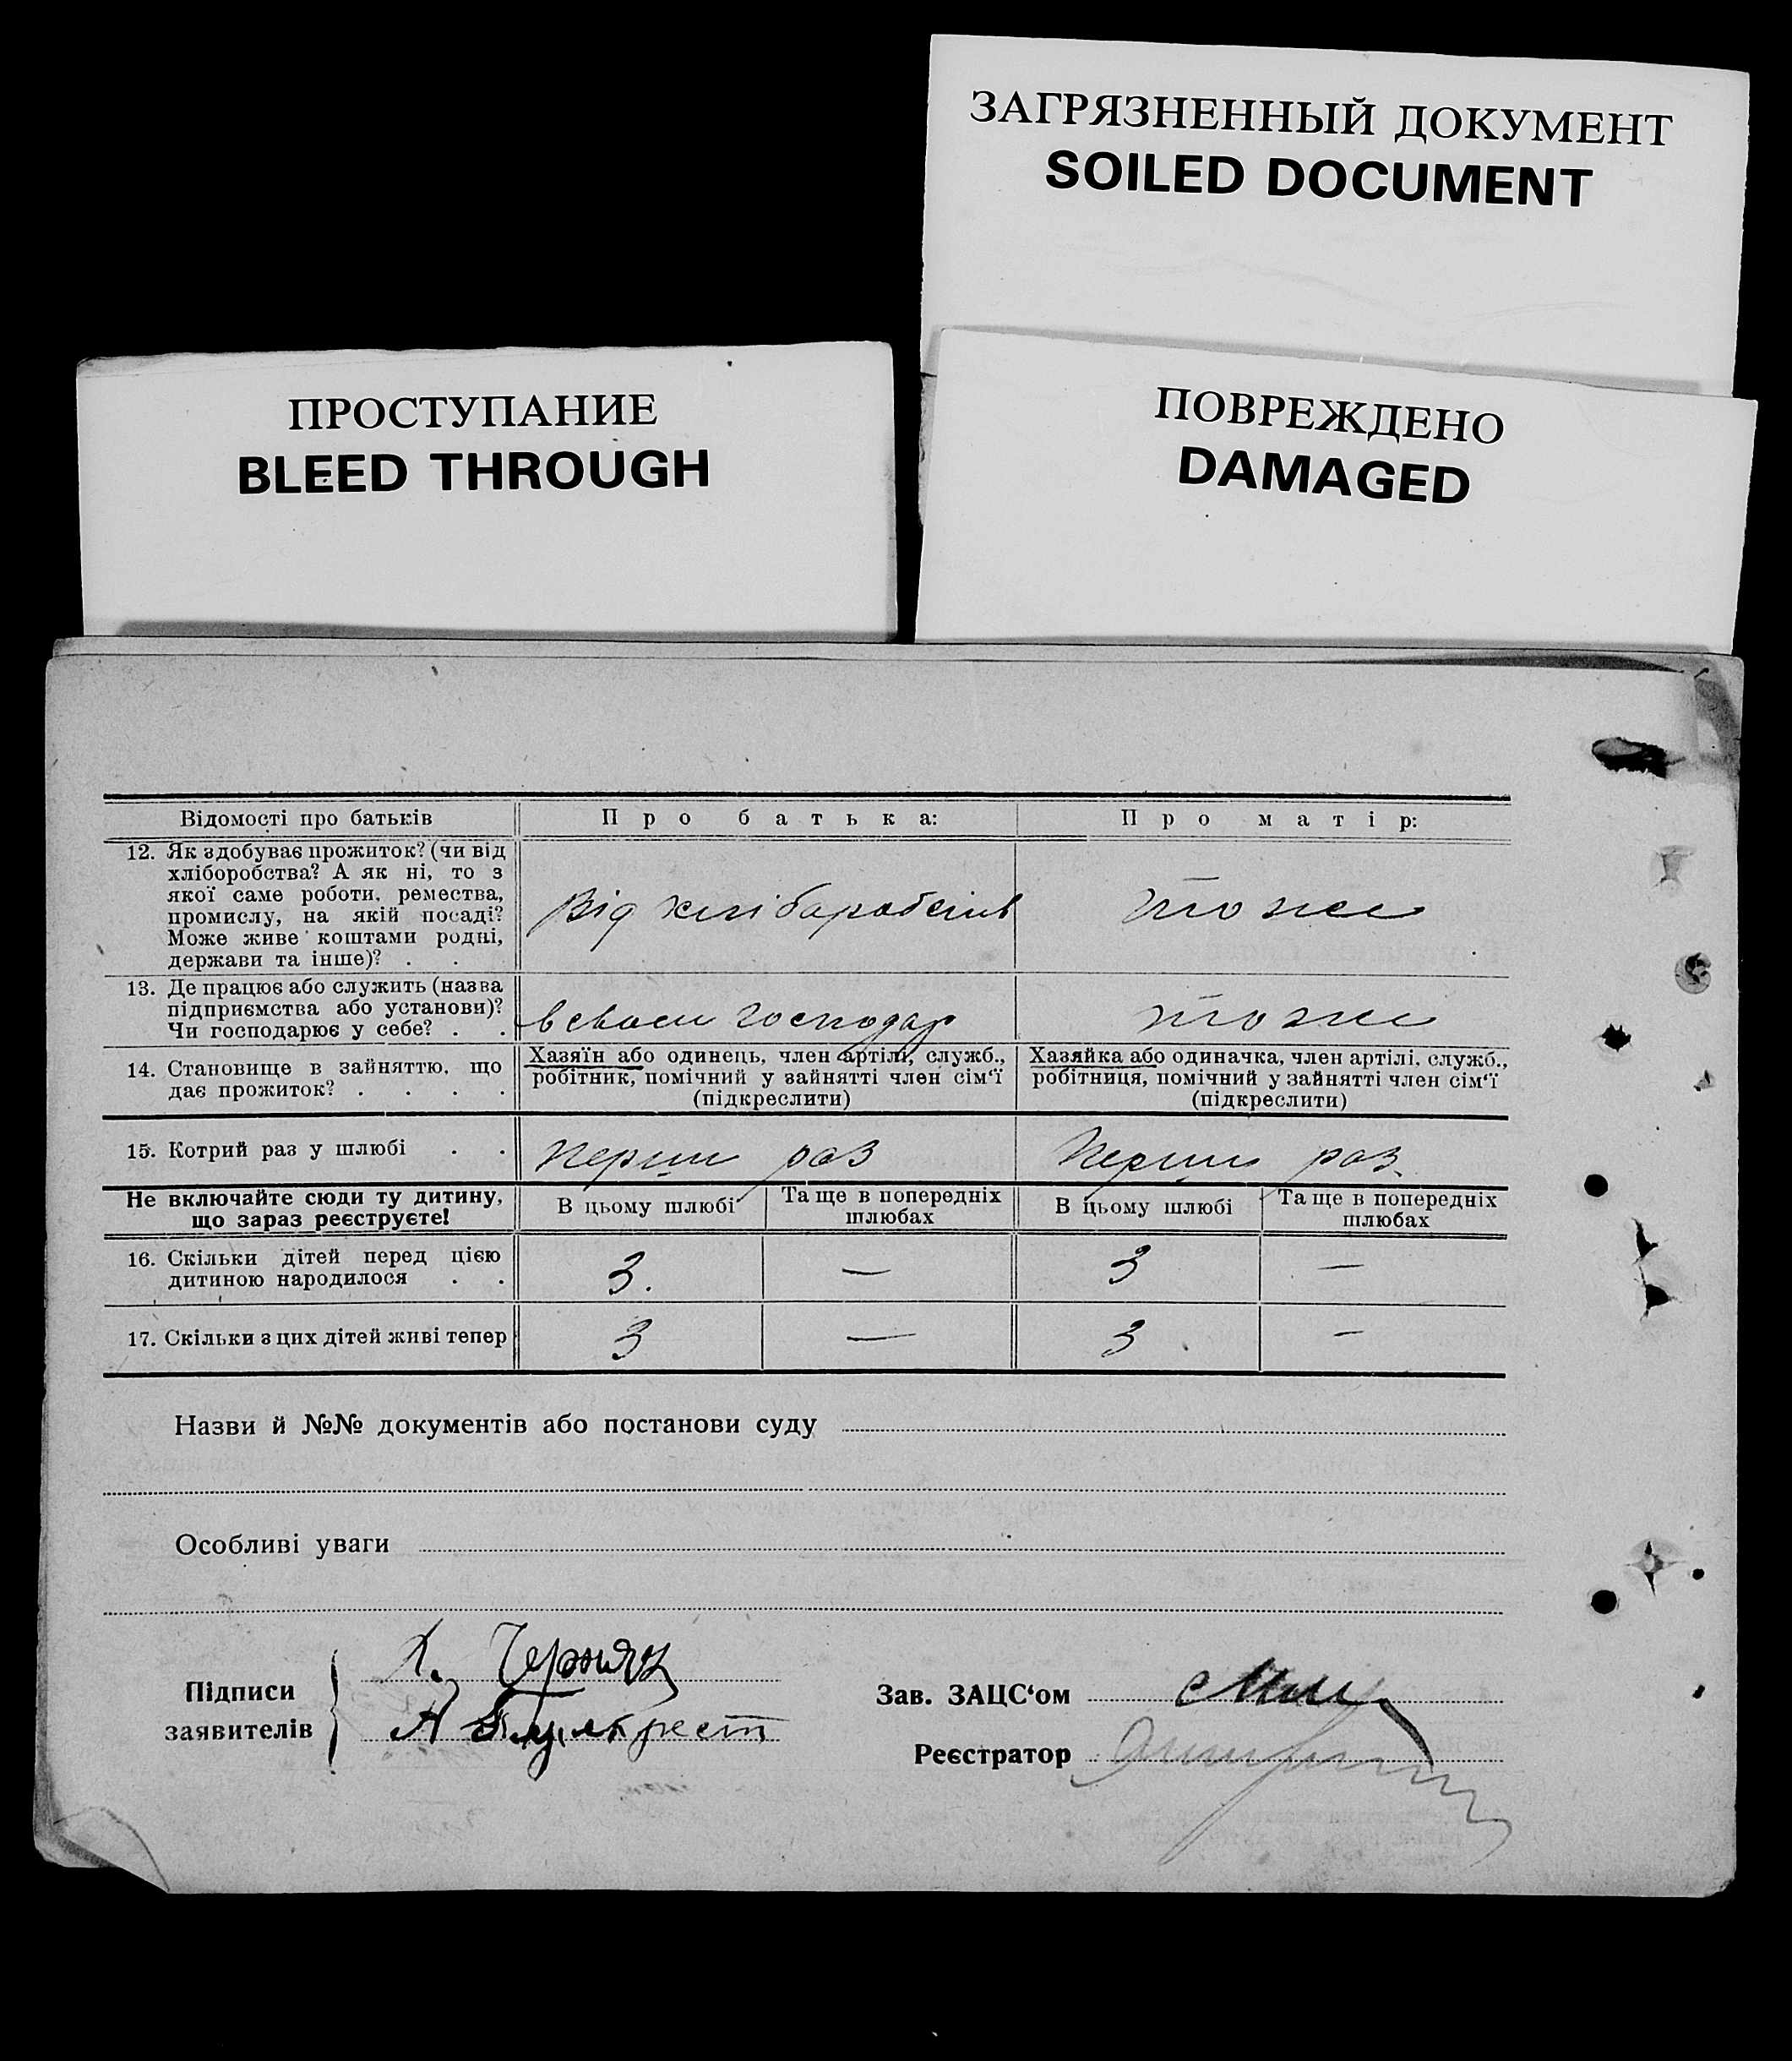 ЗАГРЯЗНЕННЫЙ ДОКУМЕНТ
SOILED DOCUMENT
ПРОСТУПАНИЕ
BLEED THROUGH
ПОВРЕЖДЕНО
DAMAGED
Відомості про батьків
Про батька:
Про матір:
12. Як здобуває прожиток? (чи від
хліборобства? А як ні, то з
якої саме роботи, ремества,
промислу, на якій посаді?
Може живе коштами родні,
держави та інше)? . .
Від
тоже
13. Де працює або служить (назва
підприємства або установи)?
Чи господарює у себе? . .
господар
тоже
14. Становище в зайняттю, що
дає прожиток? . . . .
Хазяїн або одинець, член артілі, служб.,
робітник, помічний у зайнятті член сім'ї
(підкреслити)
Хазяйка або одиначка, член артілі, служб.,
робітниця, помічний у зайнятті член сім'ї
(підкреслити)
15. Котрий раз у шлюбі . .
перши раз
перши раз
Не включайте сюди ту дитину,
що зараз реєструєте!
В цьому шлюбі
Та ще в попередніх
шлюбах
В цьому шлюбі
Та ще в попередніх
шлюбах
16. Скільки дітей перед цією
дитиною народилося . .
3. — 3 —
17. Скільки з цих дітей живі тепер
3 — 3 —
Назви й №№ документів або постанови суду
Особливі уваги
Підписи
заявителів
Х. Черняк
А
Зав. ЗАЦС'ом
Реєстратор